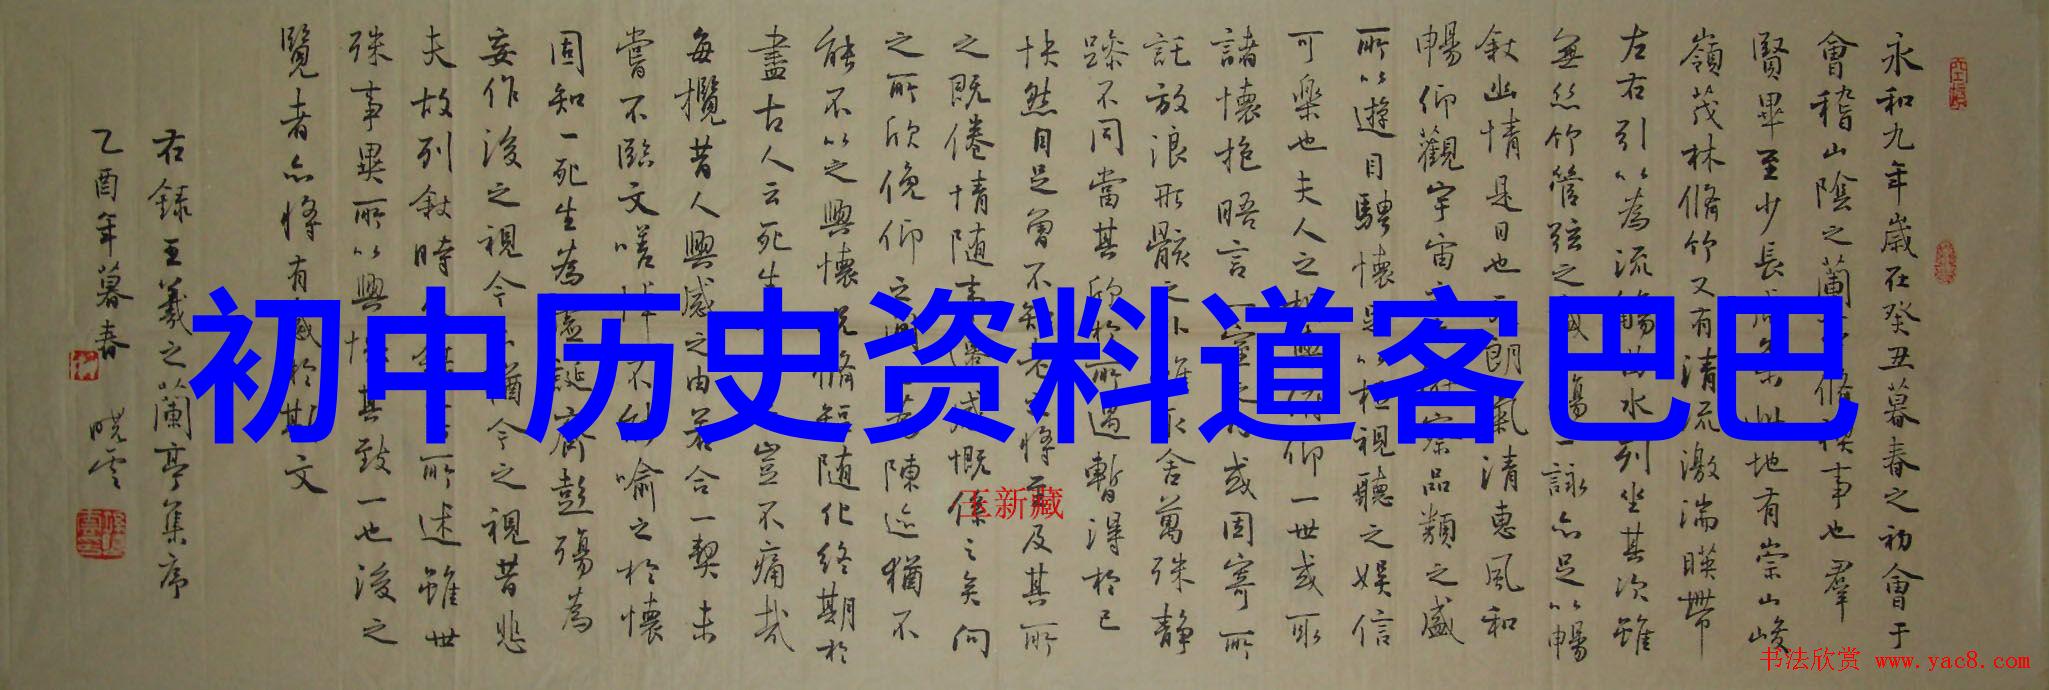 永和九年歲在癸丑暮春之初會于
會稽山陰之蘭
脩稧事也羣
賢畢至少長
此地有崇山峻
嶺茂林脩竹又有清流激湍暎帶
左右引以為流觴曲水列坐其次雖
無絲竹管弦之盛
觴一詠亦足以暢
敘幽情是日也
朗氣清惠風和
暢仰觀宇宙之
品類之盛
所以遊目騁懷足以極視聽之娛信
可樂也夫人之相與俯仰一世或取
諸懷抱悟言一室之
或因寄所
託放浪形骸之外雖
舍萬殊静
躁不同當其欣於所遇暫得於己
快然自足曾不知老之將至及其所
之既倦情隨
感慨係之矣向
之所欣俛仰之間
為陳迹猶不
能不以之興懷況脩短隨化終期於
盡古人云死生
豈不痛哉
每攬昔人興感之由若合一契未
嘗不臨文嗟悼不
喻之於懷
固知一死生為虛誕齊彭殤為
妄作後之視今
猶今之視昔悲
夫故列敘時人
所述雖世
殊事異所以興懷其致一也後之
覽者亦將有感於斯文
右録王羲之蘭亭集序
乙酉年暮春
曉雲
初中历史资料道客巴巴
王新藏
书法欣赏 www.yac8.com